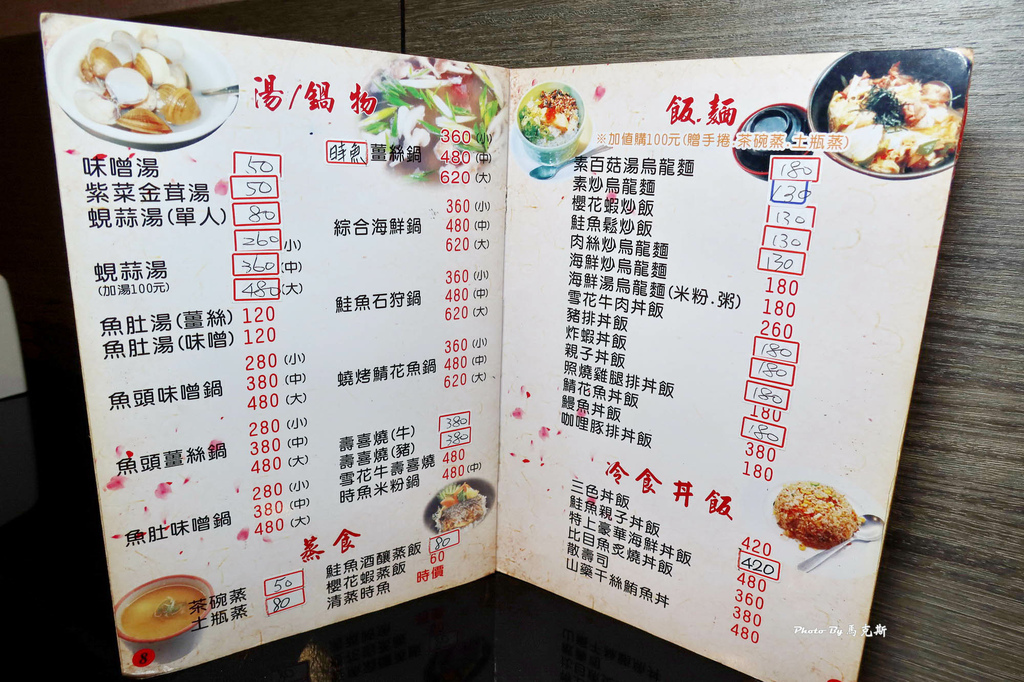 湯/鍋物
味噌湯 50
紫菜金茸湯 50
蜆蒜湯(單人) 80
260 小
蜆蒜湯 360 (中)
(加湯100元) 480 (大)
魚肚湯(薑絲) 120
魚肚湯(味噌) 120
280 (小)
魚頭味噌鍋 380 (中)
480 (大)
280 (小)
魚頭薑絲鍋 380 (中)
480 (大)
280 (小)
魚肚味噌鍋 380 (中)
480 (大)
360 (小)
時魚薑絲鍋 480 (中)
620 (大)
360 (小)
綜合海鮮鍋 480 (中)
620 (大)
360 (小)
鮭魚石狩鍋 480 (中)
620 (大)
360 (小)
蟯烤鯖花魚鍋 480 (中)
620 (大)
壽喜燒(牛) 380
壽喜燒(豬) 380
雪花牛壽喜燒 480
時魚米粉鍋 480 (中)
蒸食
茶碗蒸 50
土瓶蒸 80
鮭魚酒釀蒸飯 80
櫻花蝦蒸飯 60
清蒸時魚 時價
8
飯.麵
※加值購100元(贈手捲.茶碗蒸.土瓶蒸)
素百菇湯烏龍麵 180
素炒烏龍麵 130
櫻花蝦炒飯 130
鮭魚鬆炒飯 130
肉絲炒烏龍麵 130
海鮮炒烏龍麵 180
海鮮湯烏龍麵(米粉.粥) 180
雪花牛肉丼飯 260
豬排丼飯 180
炸蝦丼飯 180
親子丼飯 180
照燒雞腿排丼飯 180
鯖花魚丼飯 180
鰻魚丼飯 380
咖哩豚排丼飯 180
冷食丼飯
三色丼飯 420
鮭魚親子丼飯 420
特上豪華海鮮丼飯 480
比目魚炙燒丼飯 360
散壽司 380
山藥千絲鮪魚丼 480
Photo By 馬克斯